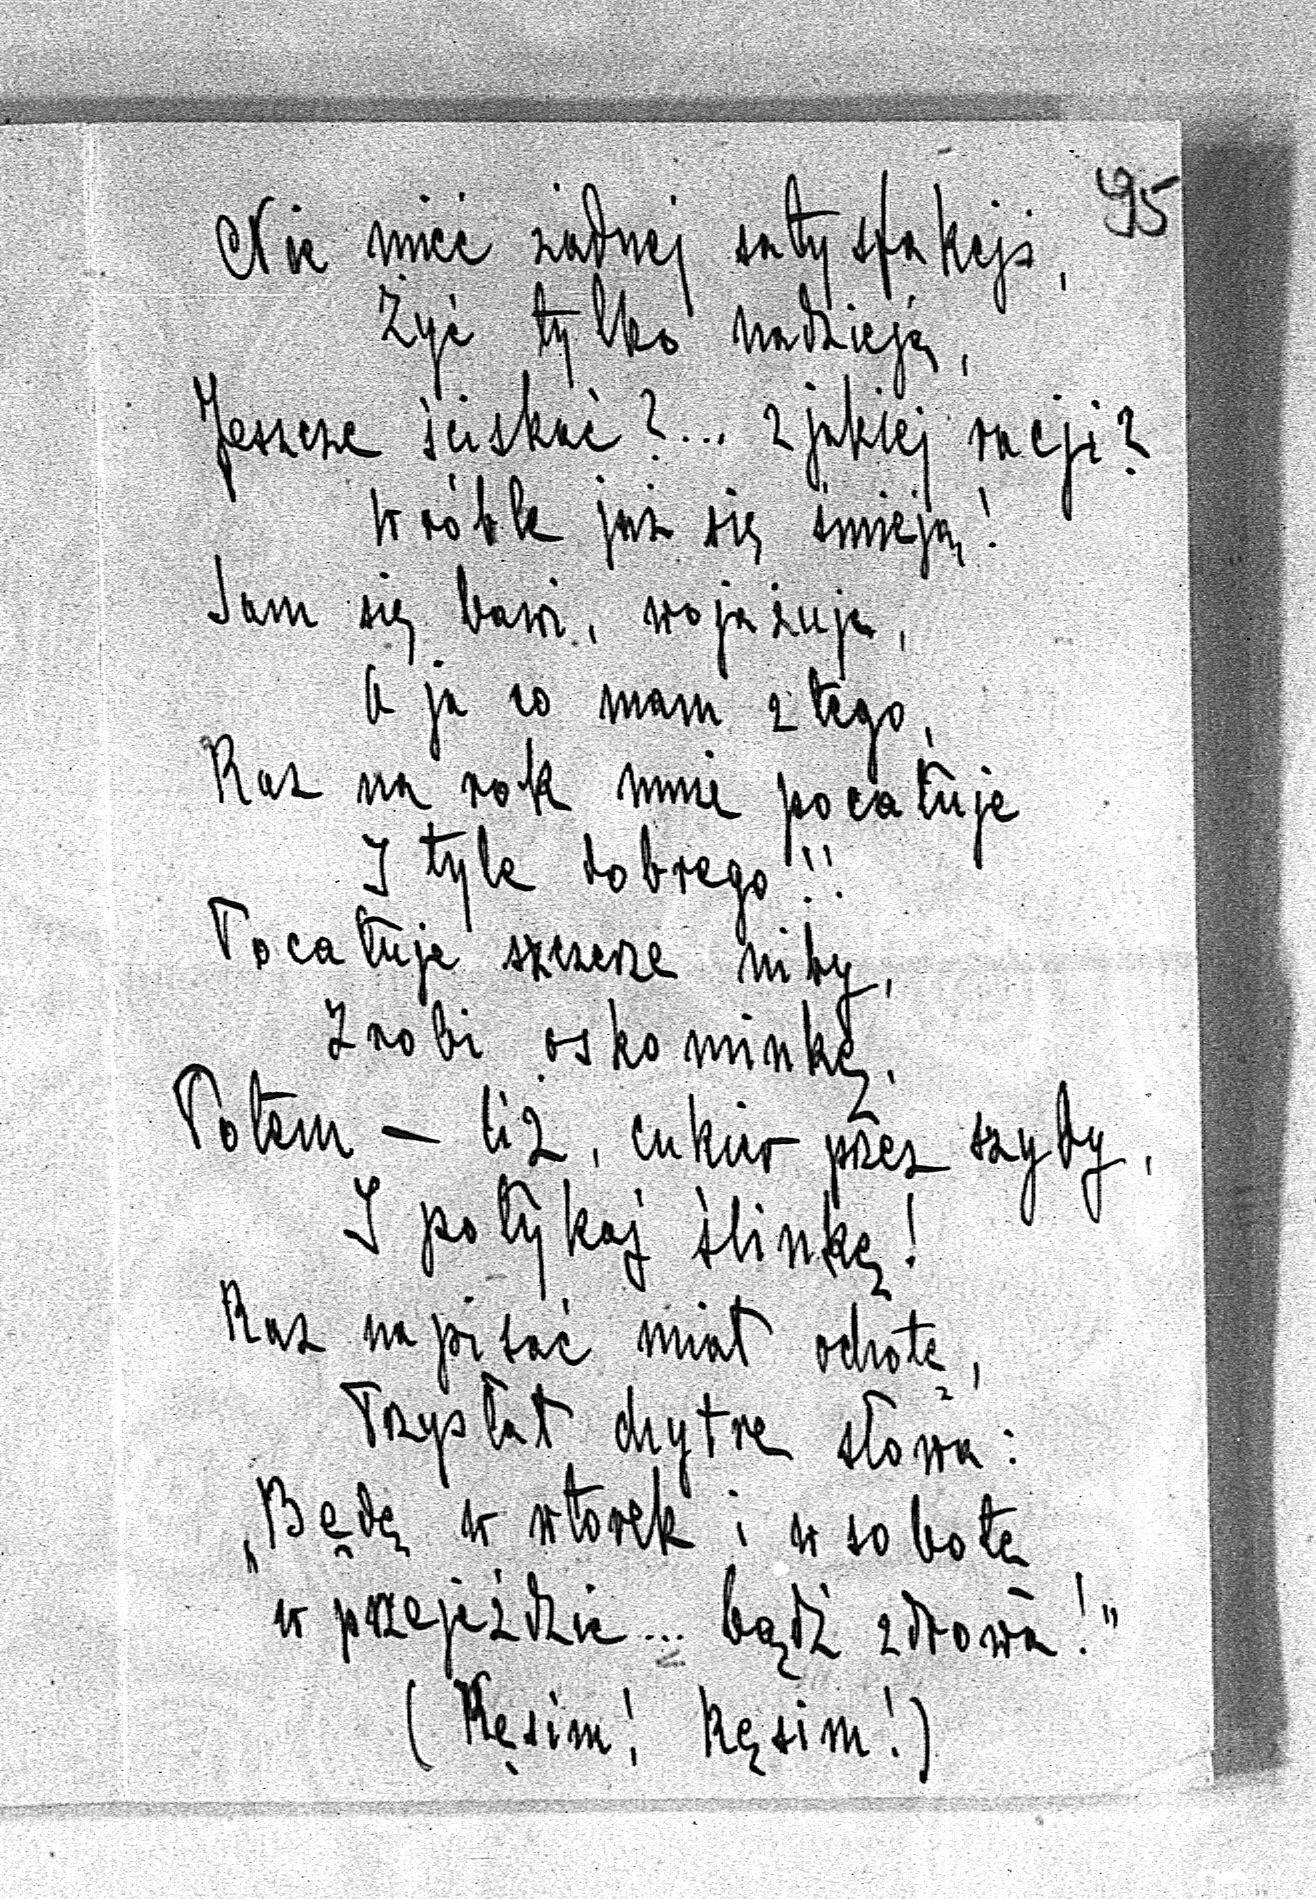 95
Nie mieć żadnej satysfakcji,
Żyć tylko nadzieją,
Jeszcze ściskać?... z jakiej racji?
Wróble już się śmieją!
Sam się bawi, wojażuje,
A ja co mam z tego,
Raz na rok mnie pocałuje
I tyle dobrego!!
Pocałuje szczerze niby,
Zrobi oskominkę,
Potem — liż, cukier przez szyby,
I połykaj ślinkę!
Raz napisać miał ochotę,
Przysłał chytre słowa:
„Będę w wtorek i w sobotę
w przejeździe... bądź zdrowa!"
(Kęsim! kęsim!)